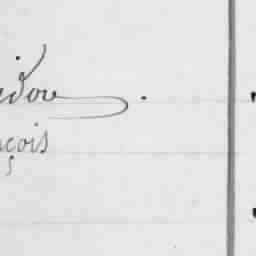 idou
nçois